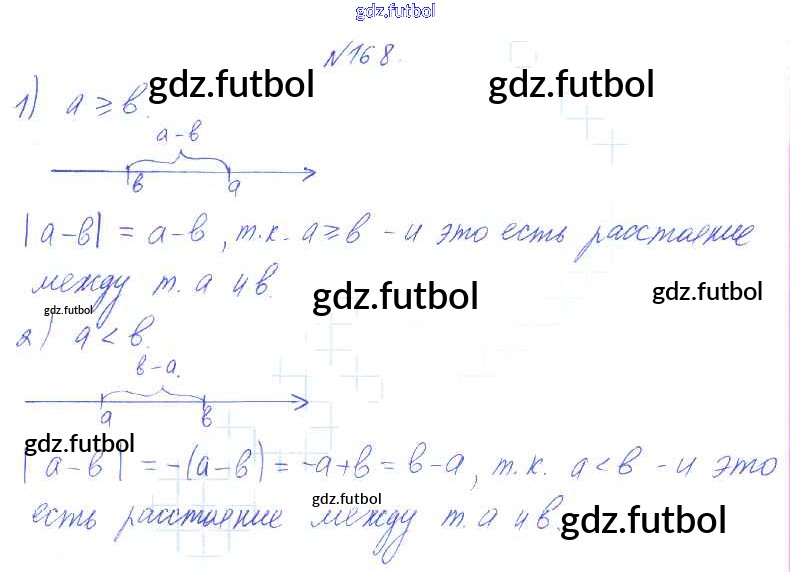 gdz.futbol
№168.
gdz.futbol gdz.futbol
1) a ≥ в.
a-в
в a
|a-в| = a-в, т.к. a ≥ в - и это есть расстояние
между т. a и в.
gdz.futbol gdz.futbol gdz.futbol
2) a < в.
в-a.
a в
gdz.futbol
|a-в| = -(a-в) = -a+в = в-a, т.к. a < в - и это
gdz.futbol
есть расстояние между т. a и в.
gdz.futbol